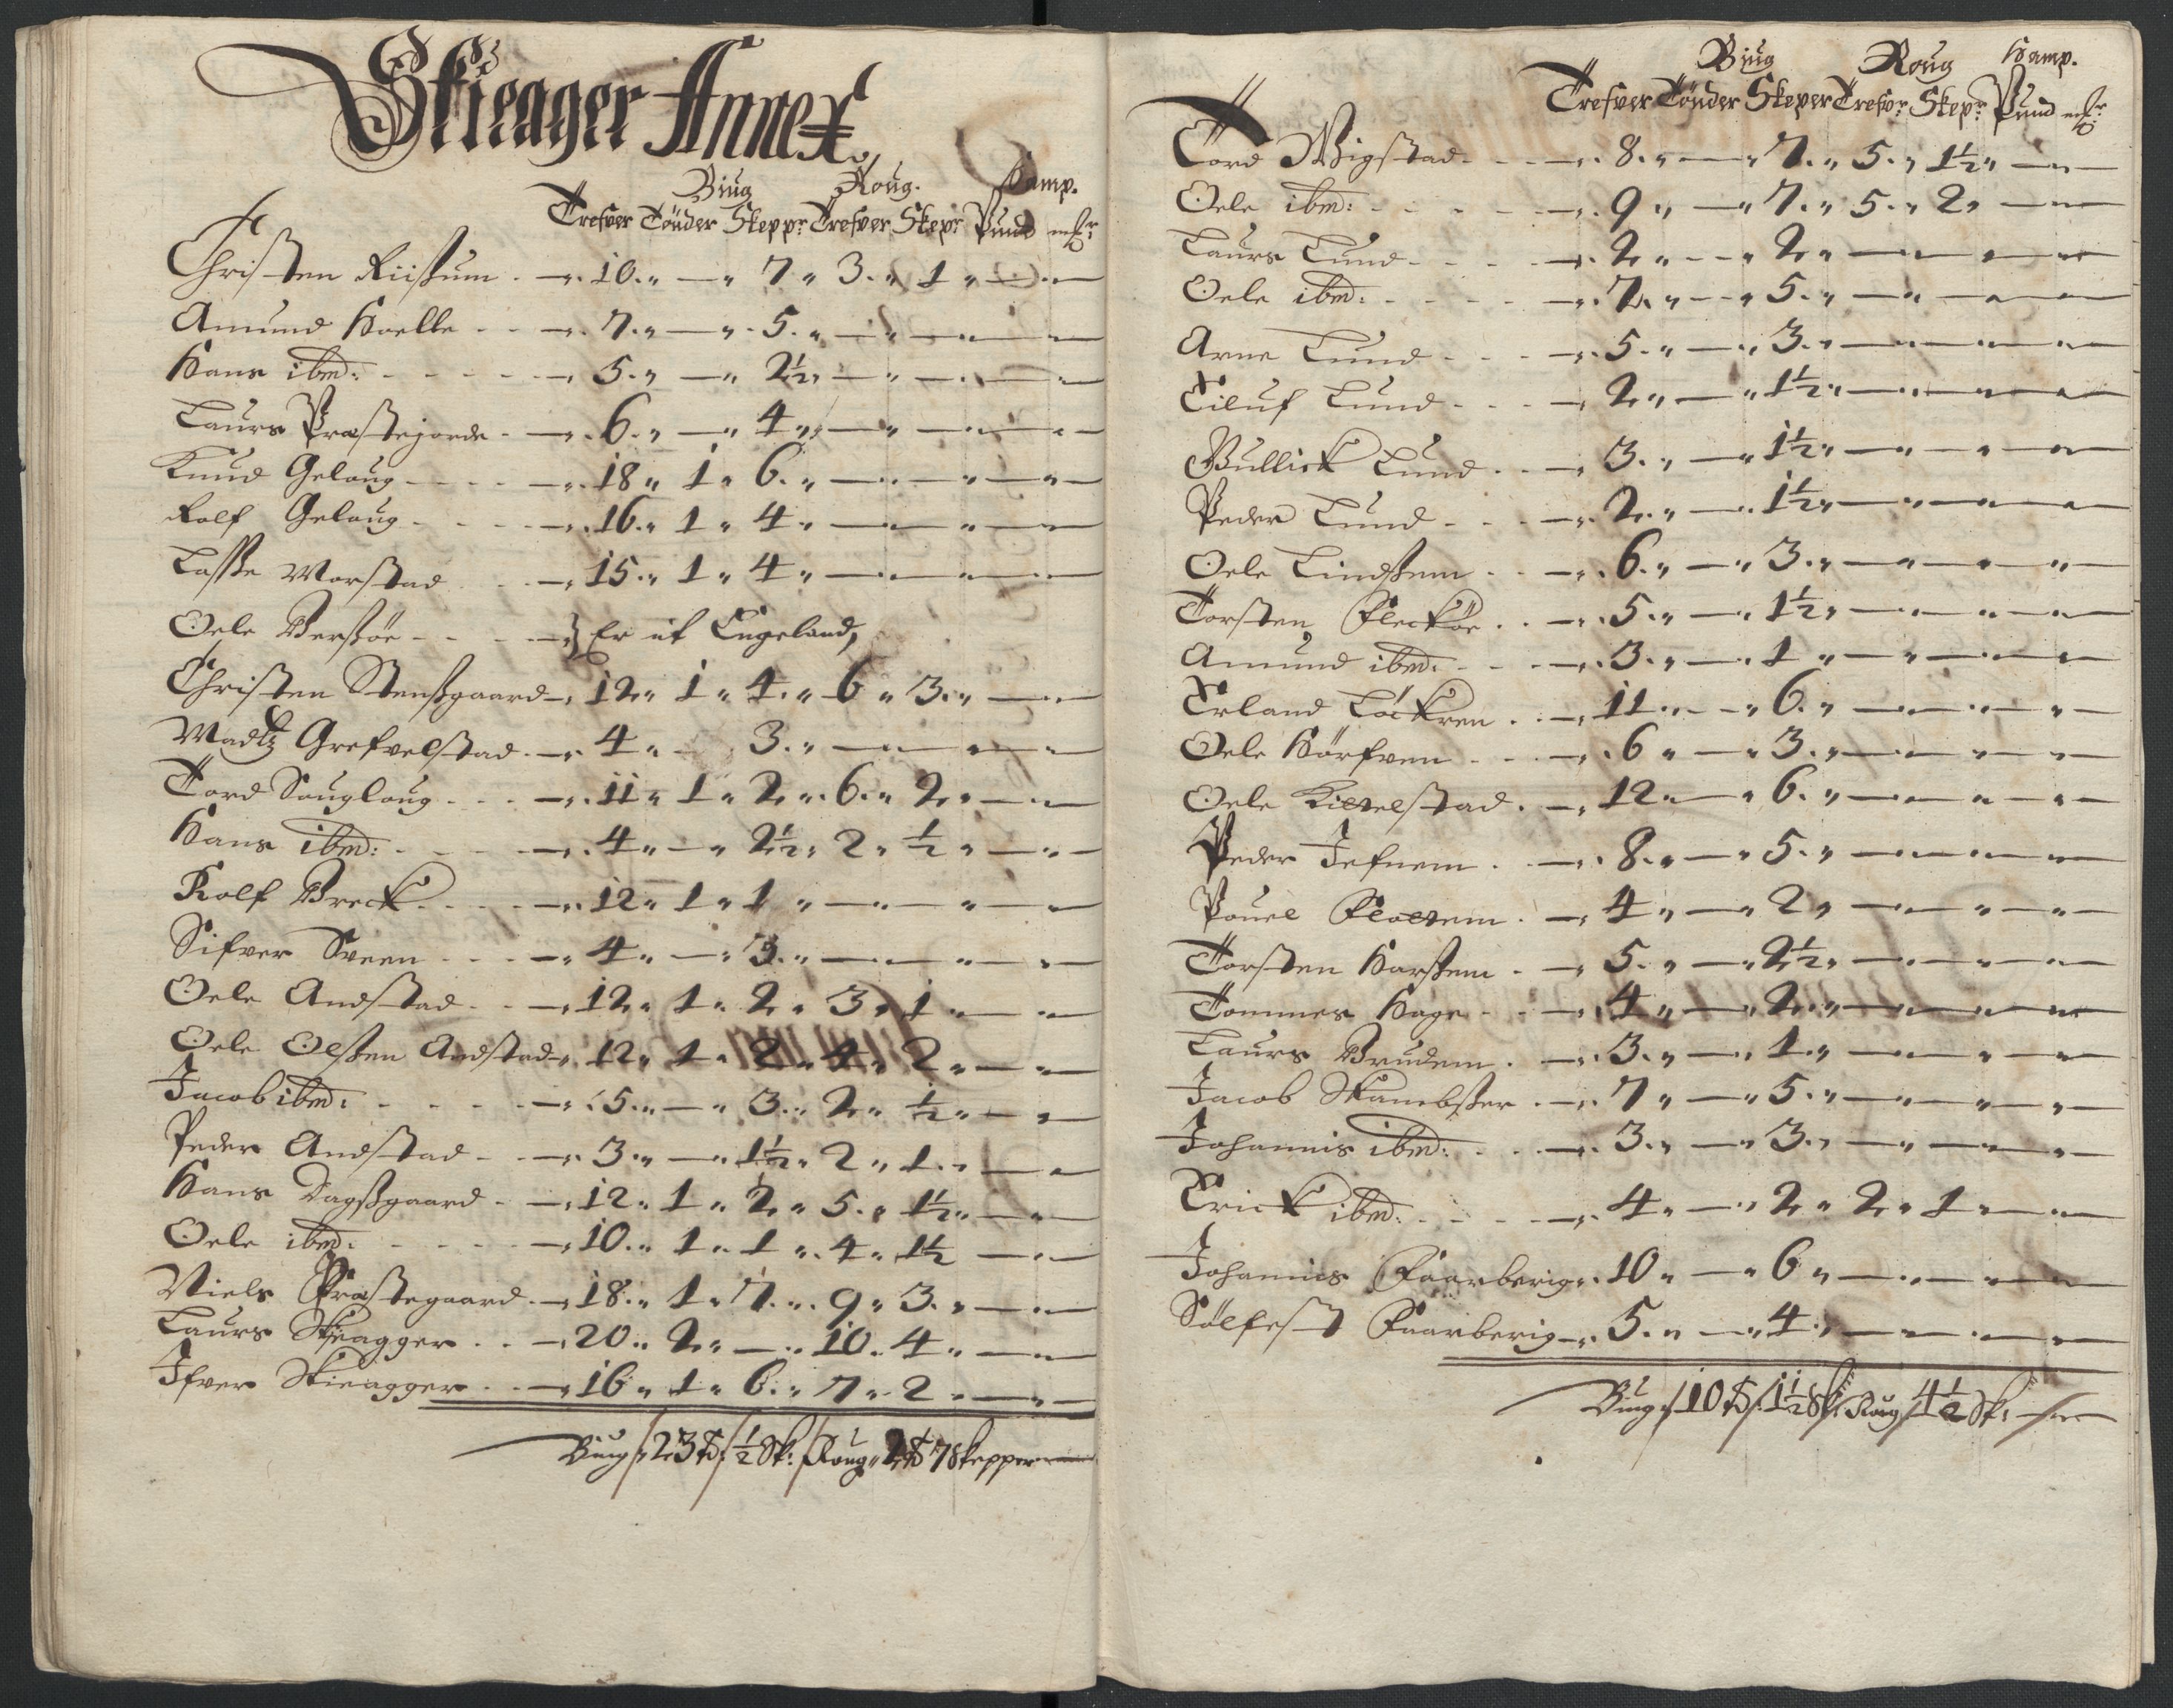 Skieager Annex,
Biug Roug. Hamp.
Trefver Tönder Skeppr Trefver Skepr Pund mkr
Christen Riissum . — 10. „ — „ 7 „ 3. „ 1 „ — — —
Amund Hoelle - - — 7. „ — „ 5. „ — „ — —
Hans ibm: - - - - — 5. „ — „ 2½ „ — „ — —
Laurs Præstejorde - — 6. „ — „ 4 „ — „ — —
Knud Gelaug - - - — 18 „ 1 „ 6. „ — — —
Rolf Gelaug - - - — 16. „ 1 „ 4 „ — — —
Lasse Morstad - - — 15. „ 1 „ 4 „ — — —
Oele Berssöe - - - — Er ut Engeland,
Christen Stensgaard — 12 „ 1 „ 4. „ 6 „ 3. „ — —
Madtz Grefvelstad — 4 „ — 3. „ — — —
Tord Souglaug - - — 11 „ 1 „ 2 „ 6. „ 2 „ — —
Hans ibm: - - - — 4 „ — „ 2½ „ 2 „ ½ „ — —
Rolf Breck - - - — 12 „ 1 „ 1 „ — — —
Sifver Sveen - - — 4 „ — „ 3. „ — — —
Oele Andstad - - — 12 „ 1 „ 2 „ 3 „ 1 „ — —
Oele Olssen Andstad — 12 „ 1 „ 2 „ 4 „ 2 „ — —
Jacob ibm: - - - - — 5. „ — „ 3. „ 2 „ ½ „ — „
Peder Andstad - - — 3 „ — „ 1½ „ 2 „ 1. „ — —
Hans Dagssgaard - — 12 „ 1 „ 2 „ 5. „ 1½ „ — —
Oele ibm: - - - — 10. „ 1 „ 1 „ 4 „ 1½ — —
Niels Præstegaard — 18. „ 1 „ 7. „ 9 „ 3. „ — —
Laurs Skieagger - - — 20 „ 2 „ — „ 10. 4 „ — —
Ifver Skieagger - - — 16 „ 1 „ 6. „ 7 „ 2 „ — —
Biug / 23 td / ½ Sk: / Roug „ 2 td 7 Skepper —
Biug Roug Hamp.
Trefver Tönder Skeper Trefvr Skepr Pund mkr
Tord Wigstad - - — 8. „ — „ 7. „ 5. „ 1½ „ — —
Oele ibm: - - - — 9 „ — „ 7. „ 5. „ 2 „ — —
Laurs Lund - - - — 2 „ - - „ 2 „ — — —
Oele ibm: - - - — 7. „ — „ 5. „ — — —
Arne Lund - - - — 5. „ — „ 3. „ — — —
Eiluf Lund - - - — 2 „ — „ 1½ „ — — —
Bullick Lund - - — 3. „ — „ 1½ „ — — —
Peder Lund - - - — 2. „ — „ 1½ „ — — —
Oele Lindssem - - — 6. „ — „ 3. „ — — —
Torsten Flecköe . . — 5. „ — „ 1½ „ — — —
Amund ibm: - - — 3. „ — „ 1 „ — — —
Erland Löckren . — 11. „ - - „ 6. „ — — —
Oele Hörfven - - — 6 „ — „ 3. „ — — —
Oele Kieelstad . — 12 „ — „ 6. „ — — —
Peder Jefnem . — 8. „ — „ 5. „ — — —
Pouel Floetem . — 4 „ — „ 2 „ — — —
Torsten Harssem - — 5. „ — „ 2½ „ — — —
Tommes Hage - - — 4 „ — „ 2. „ — — —
Laurs Brudem . — 3. „ — „ 1. „ — — —
Jacob Skambsser . — 7 „ — „ 5. „ — — —
Johannis ibm: - - — 3. „ — „ 3. „ — — —
Erick ibm: - - - — 4 „ — „ 2 „ 2 „ 1 „ — —
Johannies Faarberig „ 10 „ — „ 6 „ — — —
Sölfest Faarberig — 5. „ — „ 4. „ — — —
Biug / 10 td / 1½ Sk: / Roug / 4½ Sk: —